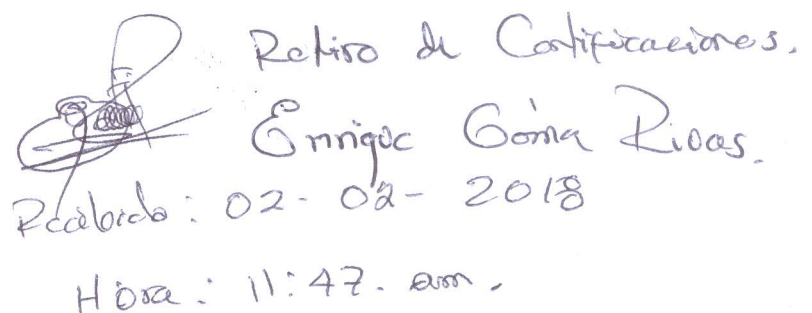 Retiro de Certificaciones.
Enrique Góma Rivas.
Recibido: 02-02-2018
Hora: 11:47. am.